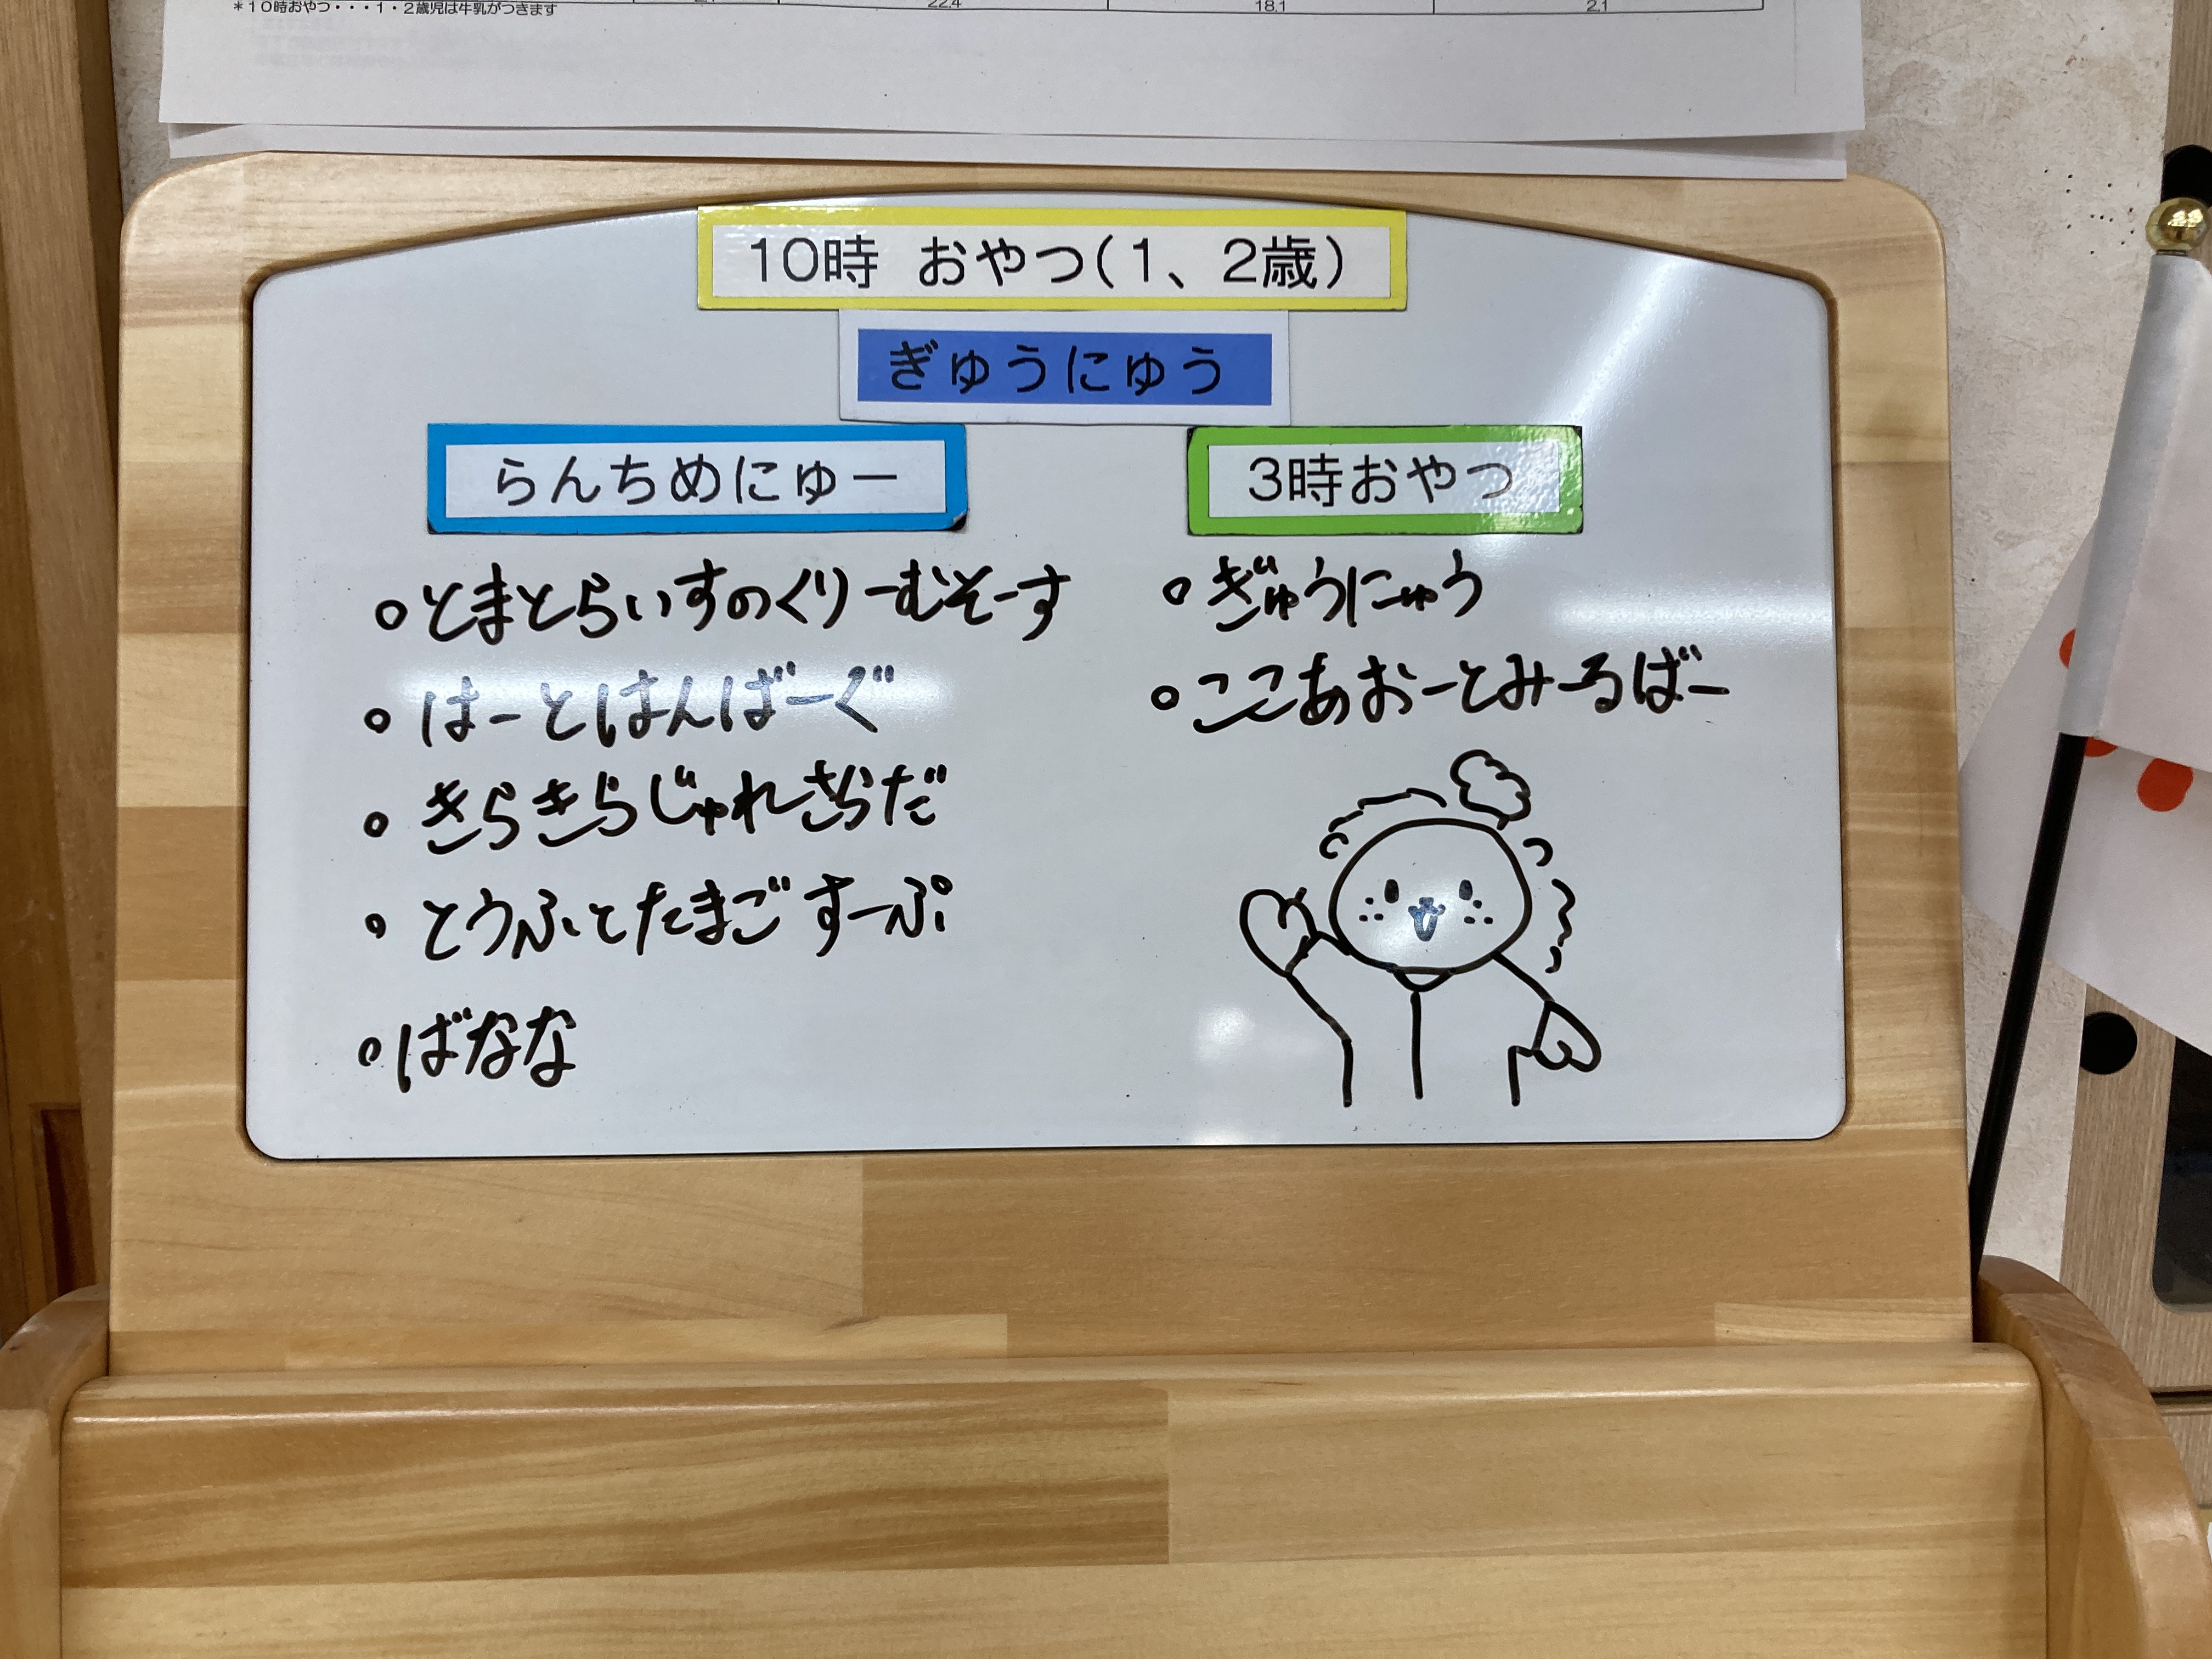 *10時おやつ・・・1・2歳児は牛乳がつきます
22.4
18.1
2.1
10時 おやつ(1、2歳)
ぎゅうにゅう
らんちめにゅー
3時おやつ
とまとらいすのくりーむそーす
はーとはんばーぐ
きらきらじゅれさらだ
とうふとたまごすーぷ
ばなな
ぎゅうにゅう
ここあおーとみーるばー